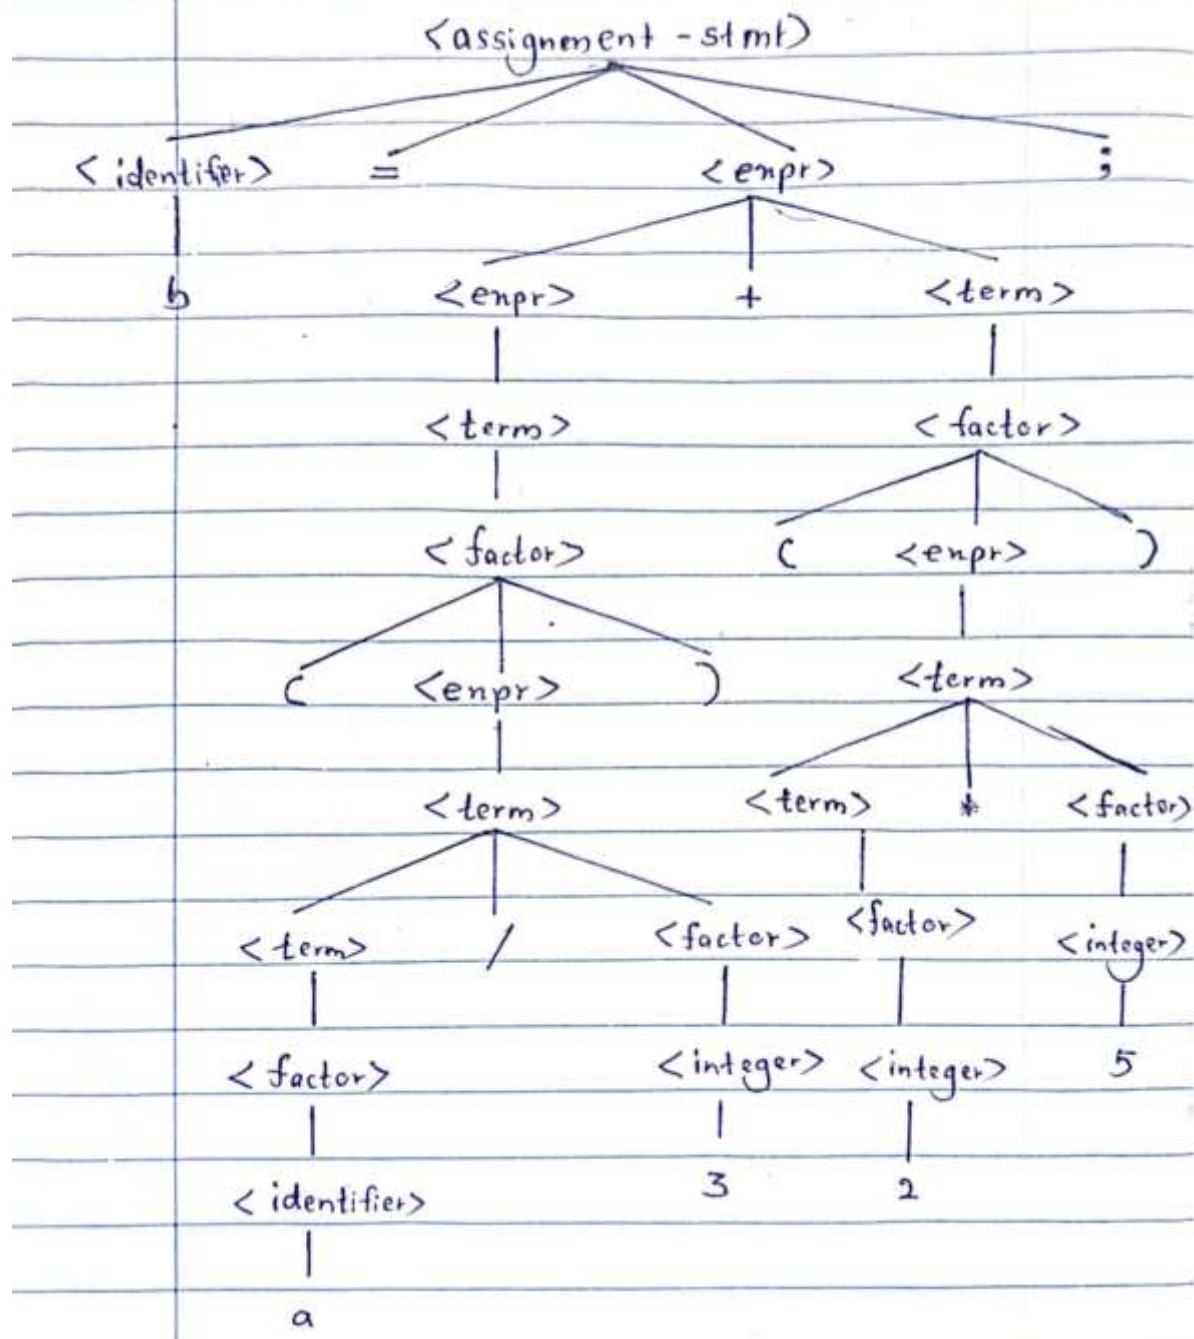 <assignment -stmt>
<identifier> = <expr> ;
b <expr> + <term>
<term> <factor>
<factor> ( <expr> )
( <expr> ) <term>
<term> <term> * <factor>
<term> / <factor> <factor> <integer>
<factor> <integer> <integer> 5
<identifier> 3 2
a